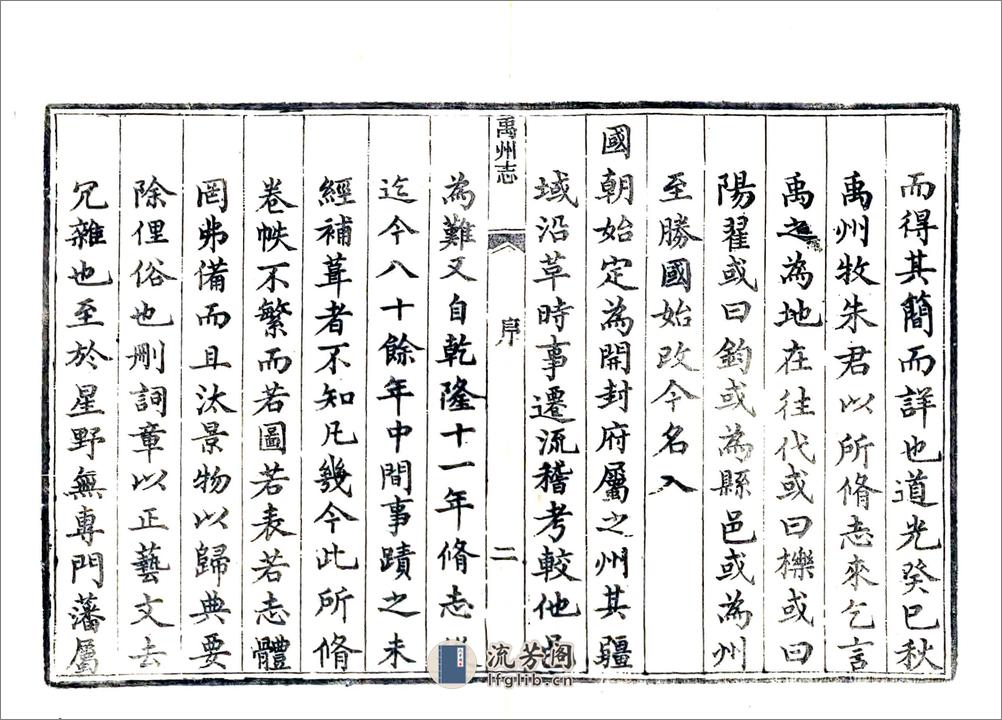 而得其簡而詳也道光癸巳秋
禹州牧朱君以所脩志來乞言
禹之為地在往代或曰櫟或曰
陽翟或曰鈞或為縣邑或為州
至勝國始改今名入
國朝始定為開封府屬之州其疆
域沿革時事遷流稽考較他
禹州志
序
二
為難又自乾隆十一年脩志
迄今八十餘年中間事蹟之未
經補葺者不知凡幾今此所脩
卷帙不繁而若圖若表若志體
罔弗備而且汰景物以歸典要
除俚俗也刪詞章以正藝文去
冗雜也至於星野無專門藩屬
流芳阁
lfglib.cn